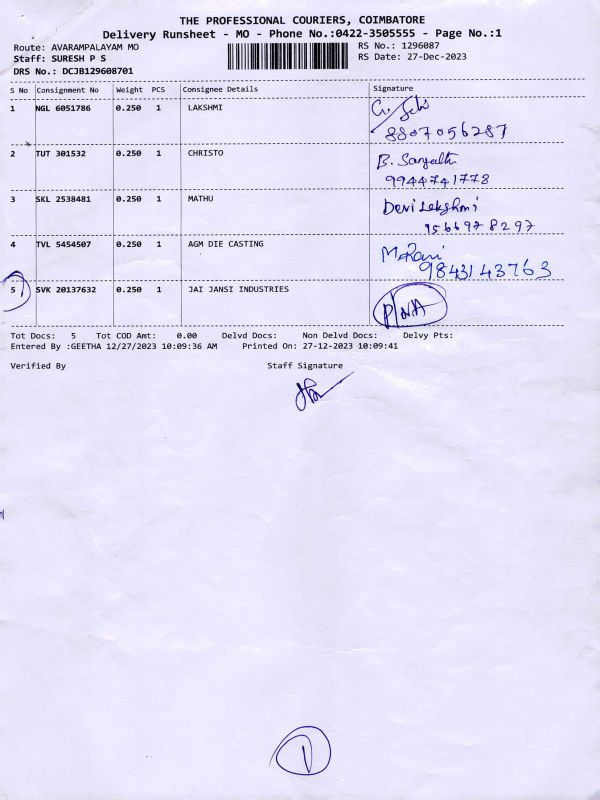 THE PROFESSIONAL COURIERS, COIMBATORE
Delivery Runsheet - MO - Phone No.:0422-3505555 - Page No.:1
Route: AVARAMPALAYAM MO RS No.: 1296087
Staff: SURESH P S RS Date: 27-Dec-2023
DRS No.: DCJB129608701
S No Consignment No Weight PCS Consignee Details Signature
1 NGL 6051786 0.250 1 LAKSHMI
8807056287
2 TUT 301532 0.250 1 CHRISTO B.
9944741778
3 SKL 2538481 0.250 1 MATHU Devi
9566978297
4 TVL 5454507 0.250 1 AGM DIE CASTING M. Rani
9843143763
5 SVK 20137632 0.250 1 JAI JANSI INDUSTRIES P/NA
Tot Docs: 5 Tot COD Amt: 0.00 Delvd Docs: Non Delvd Docs: Delvy Pts:
Entered By :GEETHA 12/27/2023 10:09:36 AM Printed On: 27-12-2023 10:09:41
Verified By Staff Signature
1